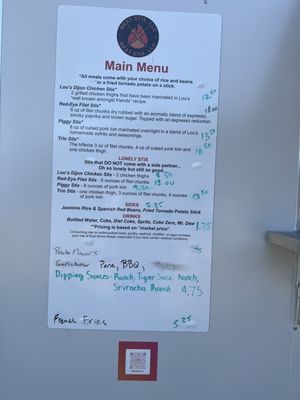 MEAT STIX, LLC
MEAT STIX, LLC
Main Menu
"All meals come with your choice of rice and beans
or a fried tornado potato on a stick.
Lou's Dijon Chicken Stix*
12.50
2 grilled chicken thighs that have been marinated in Lou's
"well known amongst friends" recipe.
Red-Eye Filet Stix*
18.00
6 oz of filet chunks dry rubbed with an aromatic blend of espresso,
smoky paprika and brown sugar. Topped with an espresso reduction.
Piggy Stix*
13.50
8 oz of cubed pork loin marinated overnight in a blend of Lou's
homemade sofrito and seasonings.
Trio Stix*
18.50
The trifecta 3 oz of filet chunks, 4 oz of cubed pork loin and
one chicken thigh.
LONELY STIX
Stix that DO NOT come with a side partner..
Oh so lonely but still so good.....
Lou's Dijon Chicken Stix - 2 chicken thighs 8.50
Red-Eye Filet Stix - 6 ounces of filet chunks 13.00
Piggy Stix - 8 ounces of pork loin 9.50
Trio Stix - one chicken thigh, 3 ounces of filet chunks, 4 ounces
of pork loin 13.50
SIDES 5.25
Jasmine Rice & Spanish Red Beans, Fried Tornado Potato Stick
DRINKS
Bottled Water, Coke, Diet Coke, Sprite, Coke Zero, Mt. Dew 1.75
**Pricing is based on "market price".
Consuming raw or undercooked meat, poultry, seafood, shellfish, or eggs increases
your risk of food borne illness, especially if you have certain medical conditions.
Potato Flavors .75
Garlic Butter Parm, BBQ,
Dipping Sauces - Ranch, Tiger Sauce Ranch,
Sriracha Ranch .75
French Fries 5.25